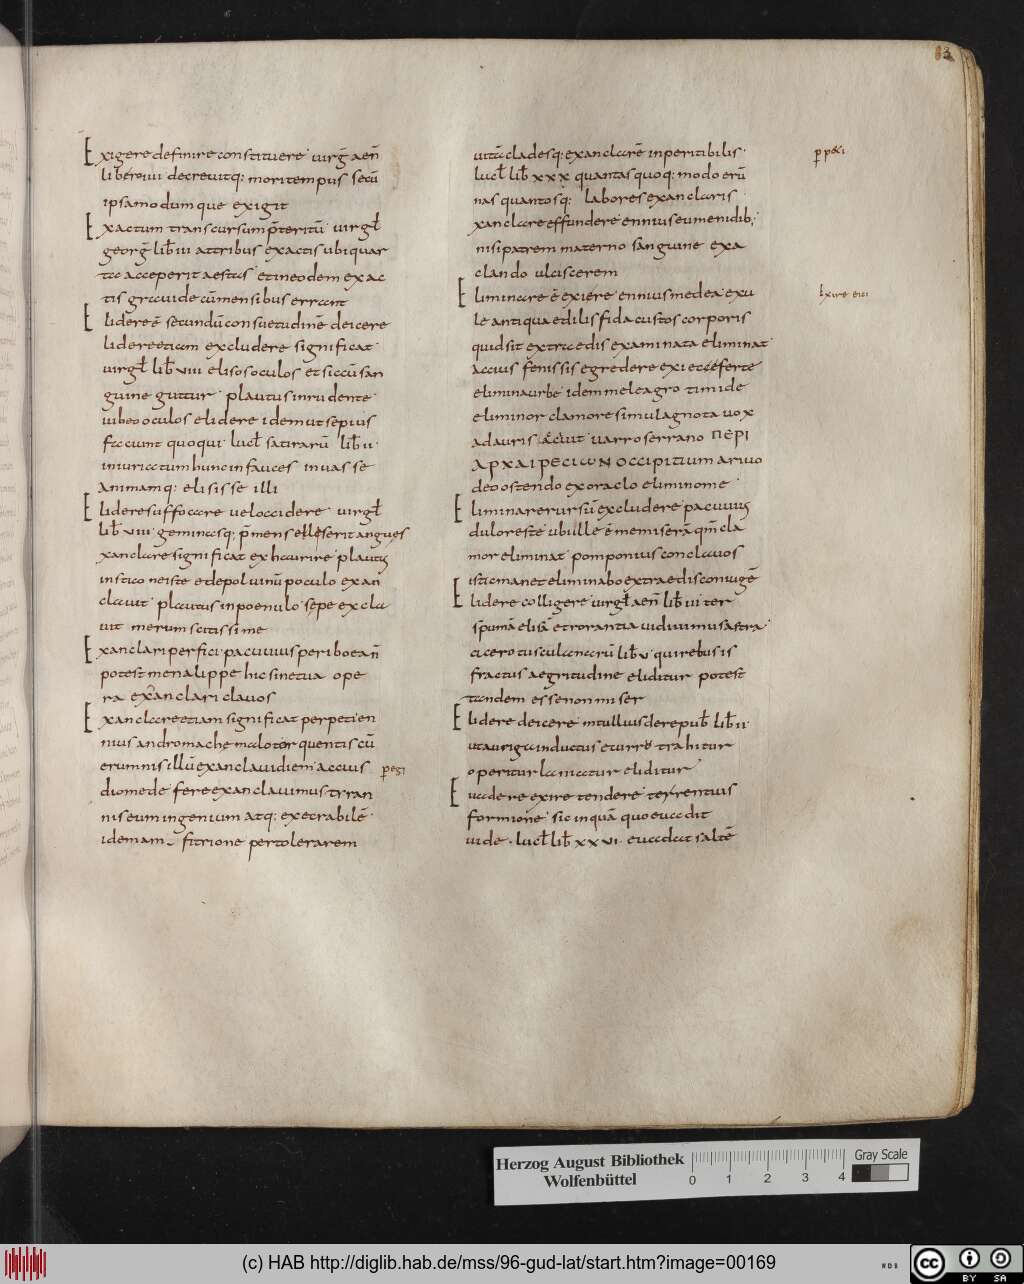 Exigere definire constituere uirg̅ aen̅
libero iiii decreuitq: mori tempus secū
ipsa modumque exigit
Exactum transcursum p̄teritū uirgł
georg̅ lib̅ iii attribus exactis ubi quar
ta acceperit aestas et in eodem exac
tis grauide cū mensibus errant
Elidere ē secundū consuetudinē deicere
lidere etiam excludere significat
uirgł lib̅ viii elisos oculos et siccū san
guine guttur plautus in rudente
iubeo oculos elidere idem ut sepius
faciunt quoqui lucł satirarū lib̅ ii
iniuriatum hunc in fauces inuasse
animamq: elisisse illi
Elidere suffocare uel occidere uirgł
lib̅ viii geminasq: p̄mens elleserit angues
xanclare significat exhaurire plautus
in stico neiste edepol uinū poculo exan
clauit plautus in poenulo sepe excla
uit merum scitissime
Exanclari perfici pacuuius periboean̅
potest menalippe hic sine tua ope
ra exanclari clauos
Exanclare etiam significat perpeti en
nius andromache malo torquentis cū
erumnis illū exanclaui diem accius
diomede fere exanclauimus tyran
nis eum ingenium atq: execrabilē
idem amfitrione pertolerarem
p̱ egi
uitā cladesq: exanclarē inperitibilis
lucł lib̅ xxx quantas quoq: modo erū
nas quantosq: labores exanclaris
xanclare effundere ennius eumenidib;
nisi patrem materno sanguine exa
clando ulciscerem
Eliminare ē exiere ennius medea exu
le antiqua edilis fida custos corporis
quid sit extra edis examinata eliminat
accius fenissis egredere exi ecceferte
elimina urbe idem meleagro timide
eliminor clamore simul agnota uox
ad auris accidit uarro serrano ΠΕΡΙ
ΑΡΧΑΙΡΕCΙωΝ occipitium ariuo
deo ostendo ex oraclo elimino me
Eliminare rursū excludere pacuuius
duloreste ubi ille ē me miserā qm̄ cla
mor eliminat pomponius conclauos
isti cmanet eliminabo extra edis coniugē
Elidere colligere uirgł aen̅ lib̅ iii ter
spumā elisā et rorantia uidimus astra
cicero tusculanarū lib̅ v quirebus is
fractus aegritudine eliditur potest
tandem esse non miser
Elidere deicere m tullius de repub̅ lib̅ ii
ut auriga indoctus e currū trahitur
operitur laniatur eliditur
Euadere exire tendere terrentius
formione sic inquā quo euadit
uide lucł lib̅ xxvi euadat saltē
ꝑ peti
exire eici
Herzog August Bibliothek
Wolfenbüttel
0 1 2 3 4
Gray Scale
(c) HAB http://diglib.hab.de/mss/96-gud-lat/start.htm?image=00169
WDB
cc BY SA